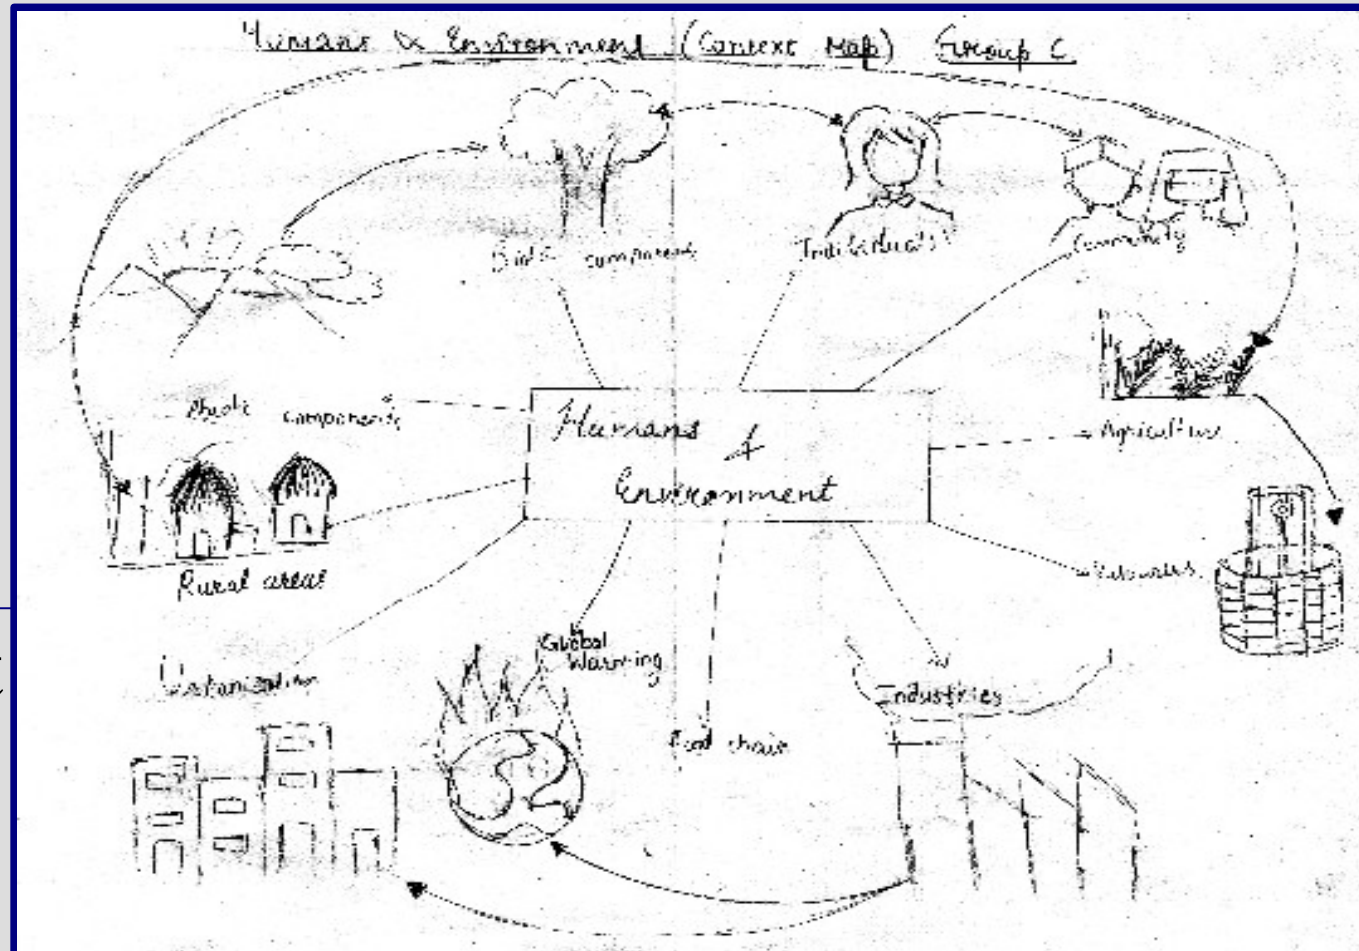 Humans & Environment (Context Map) Group C.
Biotic component
Individuals
Community
Abiotic components
Humans &
Environment
Agriculture
Rural areas
Global
Warming
Urbanization
Industries
Food chain